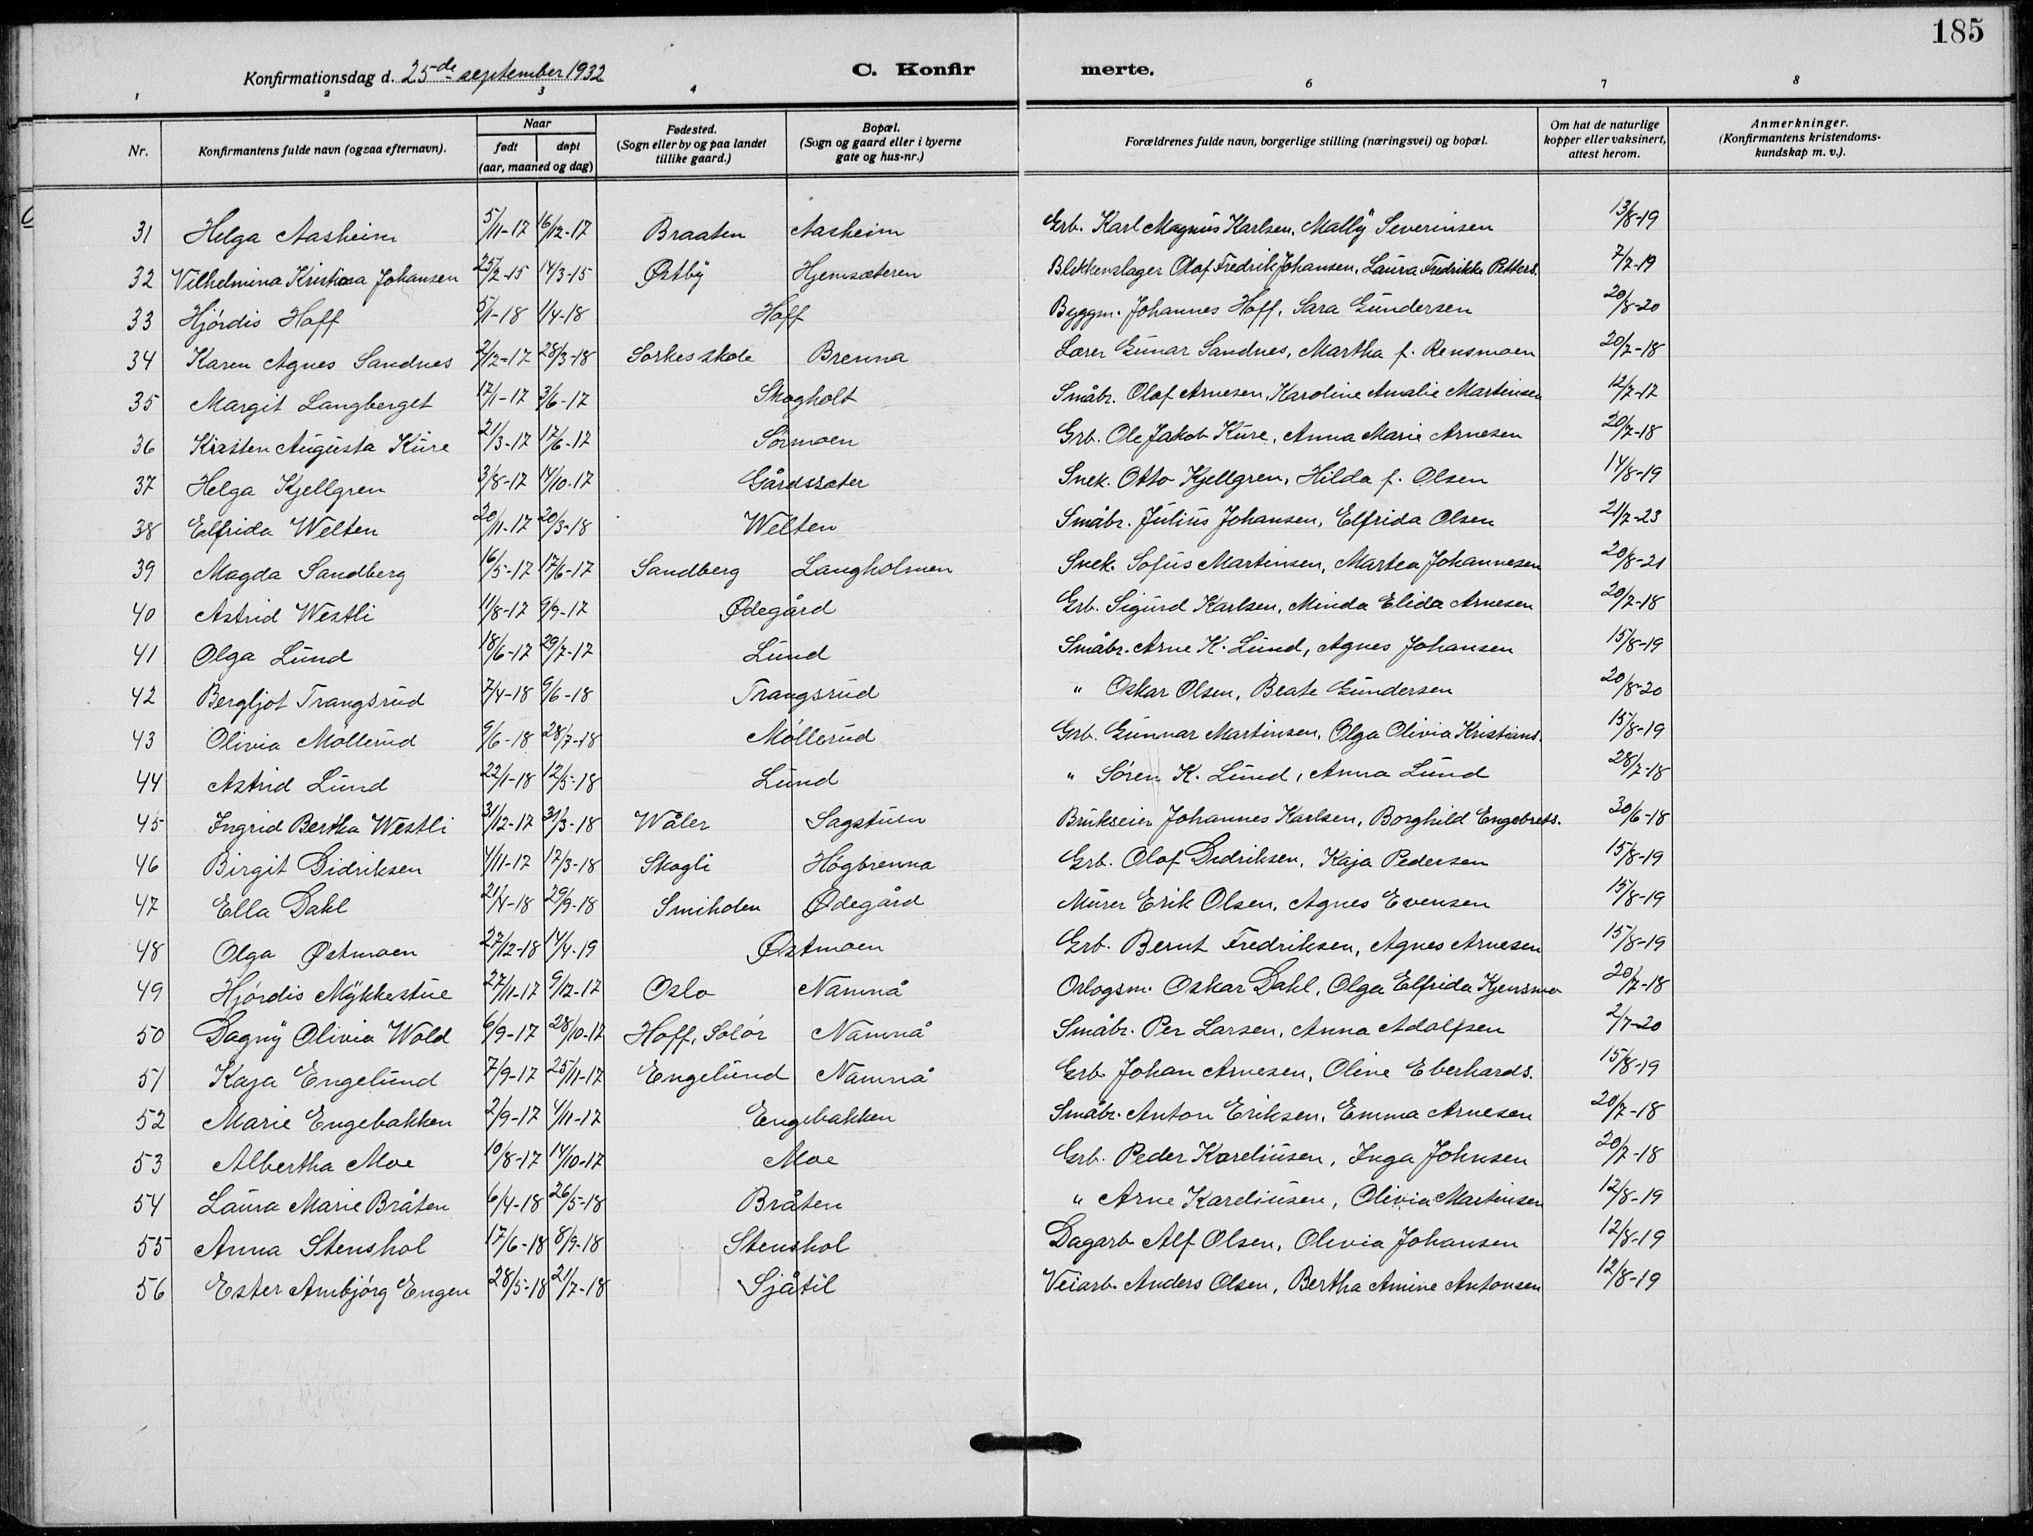 185
Konfirmationsdag d. 25de september 1932 C. Konfir merte.
1 2 3 4 6 7 8
Nr. Konfirmantens fulde navn (ogsaa efternavn). Naar født døpt (aar, maaned og dag) Fødested. (Sogn eller by og paa landet tillike gaard.) Bopæl. (Sogn og gaard eller i byerne gate og hus-nr.) Forældrenes fulde navn, borgerlige stilling (næringsvei) og bopæl. Om hat de naturlige kopper eller vaksinert, attest herom. Anmerkninger. (Konfirmantens kristendoms-kundskap m. v.).
31 Helga Aasheim 5/11-17 16/12-17 Braaten Aasheim Grb. Karl Magnus Karlsen, Mally Severinsen 13/8-19
32 Vilhelmina Kristiana Johansen 25/2-15 14/3-15 Østby Hjemsæteren Blikkenslager Olof Fredrik Johansen, Laura Fredrikke Petters. 7/7-19
33 Hjórdis Hoff 5/1-18 1/4-18 Hoff Byggm. Johannes Hoff, Sara Gundersen 20/8-20
34 Karen Agnes Sandnes 2/12-17 28/3-18 Sorkesskole Brenna Lærer Gunar Sandnes, Martha f. Rensmoen 20/7-18
35 Margit Langberget 17/1-17 3/6-17 Skogholt Småbr. Olof Arnesen, Karoline Amalie Martinsen 12/7-17
36 Kirsten Augusta Kure 21/3-17 17/6-17 Sórmoen Grb. Ole Jakob Kure, Anna Marie Arnesen 20/7-18
37 Helga Kjellgren 3/8-17 14/10-17 Gårdssæter Snek. Otto Kjellgren, Hilda f. Olsen 14/8-19
38 Elfrida Welten 20/11-17 20/3-18 Welten Småbr. Julius Johansen, Elfrida Olsen 21/7-23
39 Magda Sandberg 16/5-17 17/6-17 Sandberg Langholmen Snek. Sofus Martinsen, Martea Johannesen 20/8-21
40 Astrid Westli 11/8-17 9/9-17 Ødegård Grb. Sigurd Karlsen, Minda Elida Arnesen 20/7-18
41 Olga Lund 18/6-17 29/7-17 Lund Småbr. Arne K. Lund, Agnes Johansen 15/8-19
42 Bergljot Trangsrud 7/4-18 9/6-18 Trangsrud " Oskar Olsen, Beate Gundersen 20/8-20
43 Olivia Móllerud 9/6-18 28/7-18 Móllerud Grb. Gunnar Martinsen, Olga Olivia Kristians. 15/8-19
44 Astrid Lund 22/1-18 12/5-18 Lund " Sóren K. Lund, Anna Lund 28/7-18
45 Ingrid Bertha Westli 31/12-17 31/3-18 Wåler Sagstuen Brukseier Johannes Karlsen, Borghild Engebrets. 30/6-18
46 Birgit Didriksen 4/11-17 17/3-18 Skogli Hógbrenna Grb. Olof Didriksen, Kaja Pedersen 15/8-19
47 Ella Dahl 21/4-18 29/9-18 Smiholen Ødegård Murer Erik Olsen, Agnes Evensen 15/8-19
48 Olga Østmoen 27/12-18 14/4-19 Østmoen Grb. Bernt Fredriksen, Agnes Arnesen 15/8-19
49 Hjórdis Mykkestue 27/11-17 9/12-17 Oslo Namnå Orlogsm. Oskar Dahl, Olga Elfrida Kjensmo 20/7-18
50 Dagny Olivia Wold 6/9-17 28/10-17 Hoff, Solór Namnå Småbr. Per Larsen, Anna Adolfsen 2/7-20
51 Kaja Engelund 7/9-17 25/11-17 Engelund Namnå Grb. Johan Arnesen, Oline Eberhards. 15/8-19
52 Marie Engebakken 2/9-17 4/11-17 Engebakken Småbr. Anton Eriksen, Emma Arnesen 20/7-18
53 Albertha Moe 10/8-17 14/10-17 Moe Grb. Peder Kareliusen, Inga Johnsen 20/7-18
54 Laura Marie Bråten 6/4-18 26/5-18 Bråten " Arne Kareliusen, Olivia Martinsen 12/8-19
55 Anna Stenshol 17/6-18 8/9-18 Stenshol Dagarb. Alf Olsen, Olivia Johansen 12/8-19
56 Ester Ambjórg Engen 28/5-18 21/7-18 Sjåtil Veiarb. Anders Olsen, Bertha Amine Antonsen 12/8-19